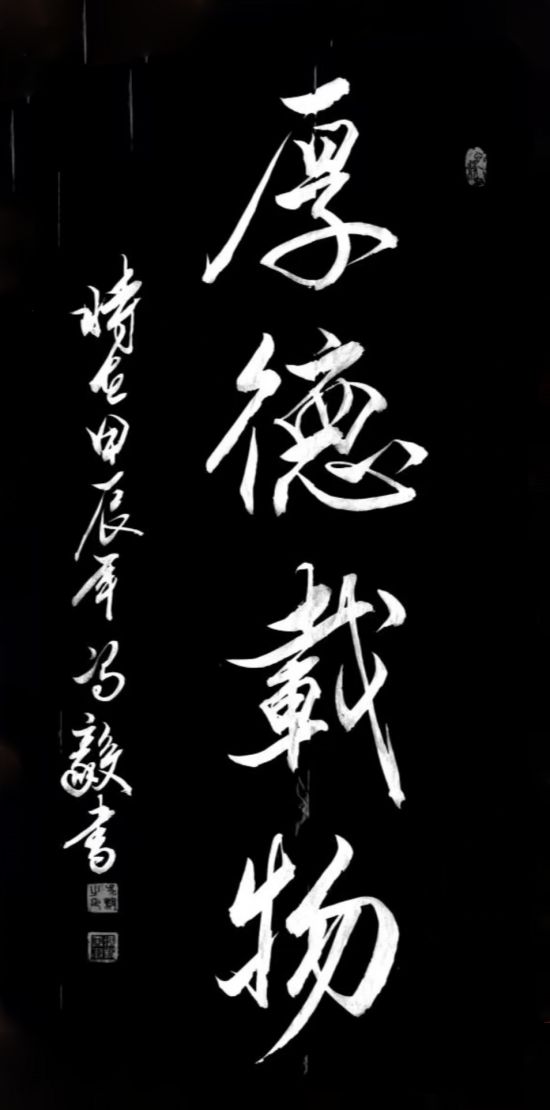 厚德載物
時在甲辰年冯毅書